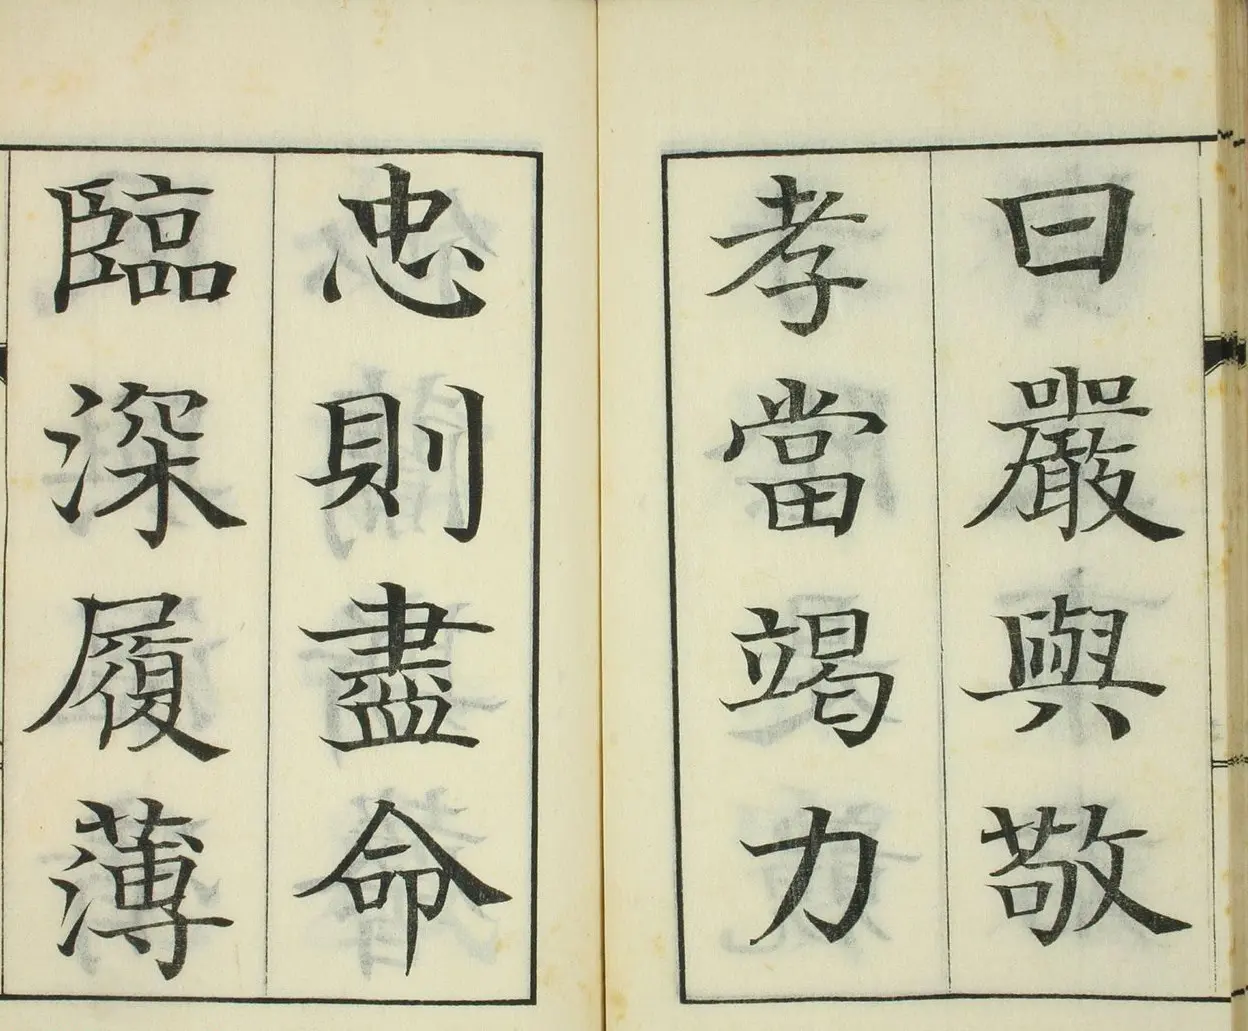 曰嚴與敬
孝當竭力
忠則盡命
臨深履薄